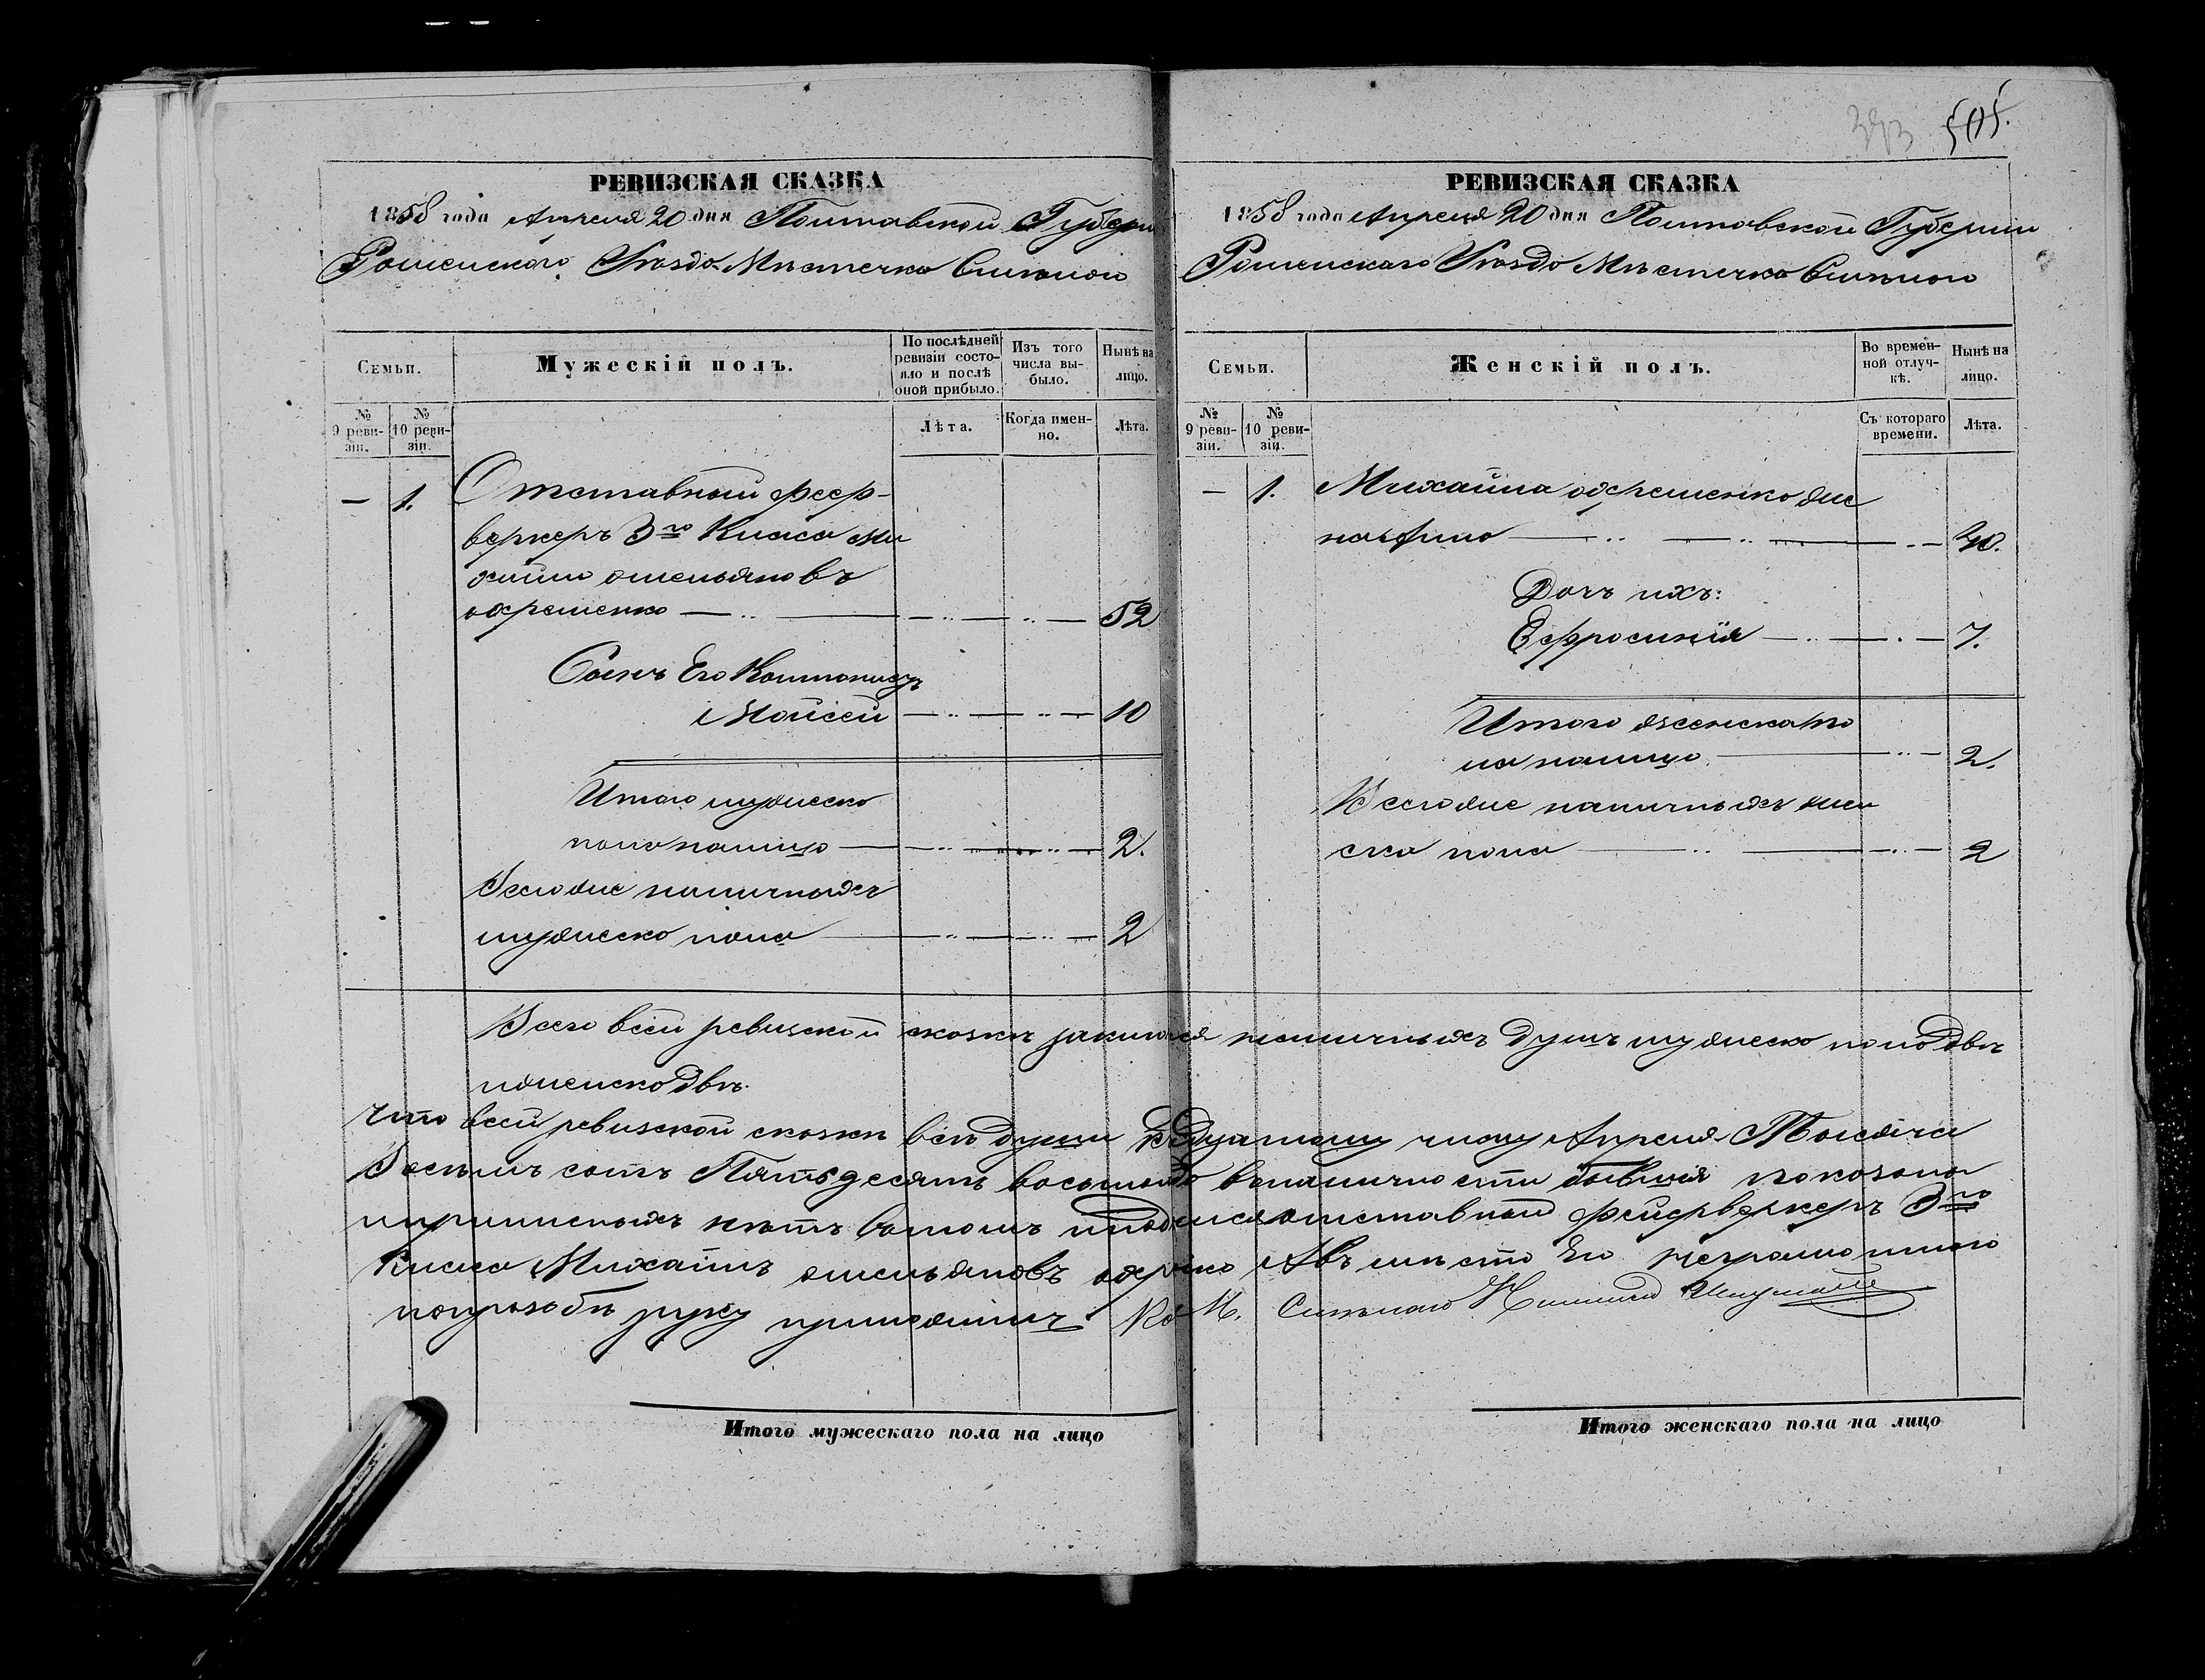 393 505.
РЕВИЗСКАЯ СКАЗКА
1858 года Апреля 20 дня Полтавской Губерни
Роменского Уезда Местечка Смелой
Семьи.
Мужескій полъ.
По послѣдней ревизіи состояло и послѣ оной прибыло.
Изъ того числа выбыло.
Нынѣ на лицо.
№ 9 ревизіи.
№ 10 ревизіи.
Лѣта.
Когда именно.
Лѣта.
— 1. Отставной феер-
веркеръ 3го Класа Ми
хайло омельяновъ
охременко 52
Сынъ Его Контонистъ
Мойсей 10
Итого мужеско
пола налицо 2.
Всего же наличныхъ
мужеско пола 2
РЕВИЗСКАЯ СКАЗКА
1858 года Апреля 20 дня Полтавской Губернии
Роменскаго Уезда Местечка Смелой
Семьи.
Женскій полъ.
Во временной отлучкѣ.
Нынѣ на лицо.
№ 9 ревизіи.
№ 10 ревизіи.
Съ котораго времени.
Лѣта.
— 1. Михайла охременка же
на 40.
Дочь ихъ:
Ефросинія 7.
Итого женска по
ла налицо 2.
Всего же наличныхъ жен
ска пола 2
Всего всей ревизской сказки наличныхъ душъ мужеско пола две
иженско две.
что всей ревизской сказки все души апреля Месяца
Восемь сотъ Пятьдесятъ восьмаго вналичности бывшия показана
и прописныхъ нетъ вътомъ отставной фейерверкеръ 3го
Класа Михайлъ омельяновъ Авъместо Его неграмотнаго
попрозьбе руку приложилъ
Итого мужескаго пола на лицо
Итого женскаго пола на лицо